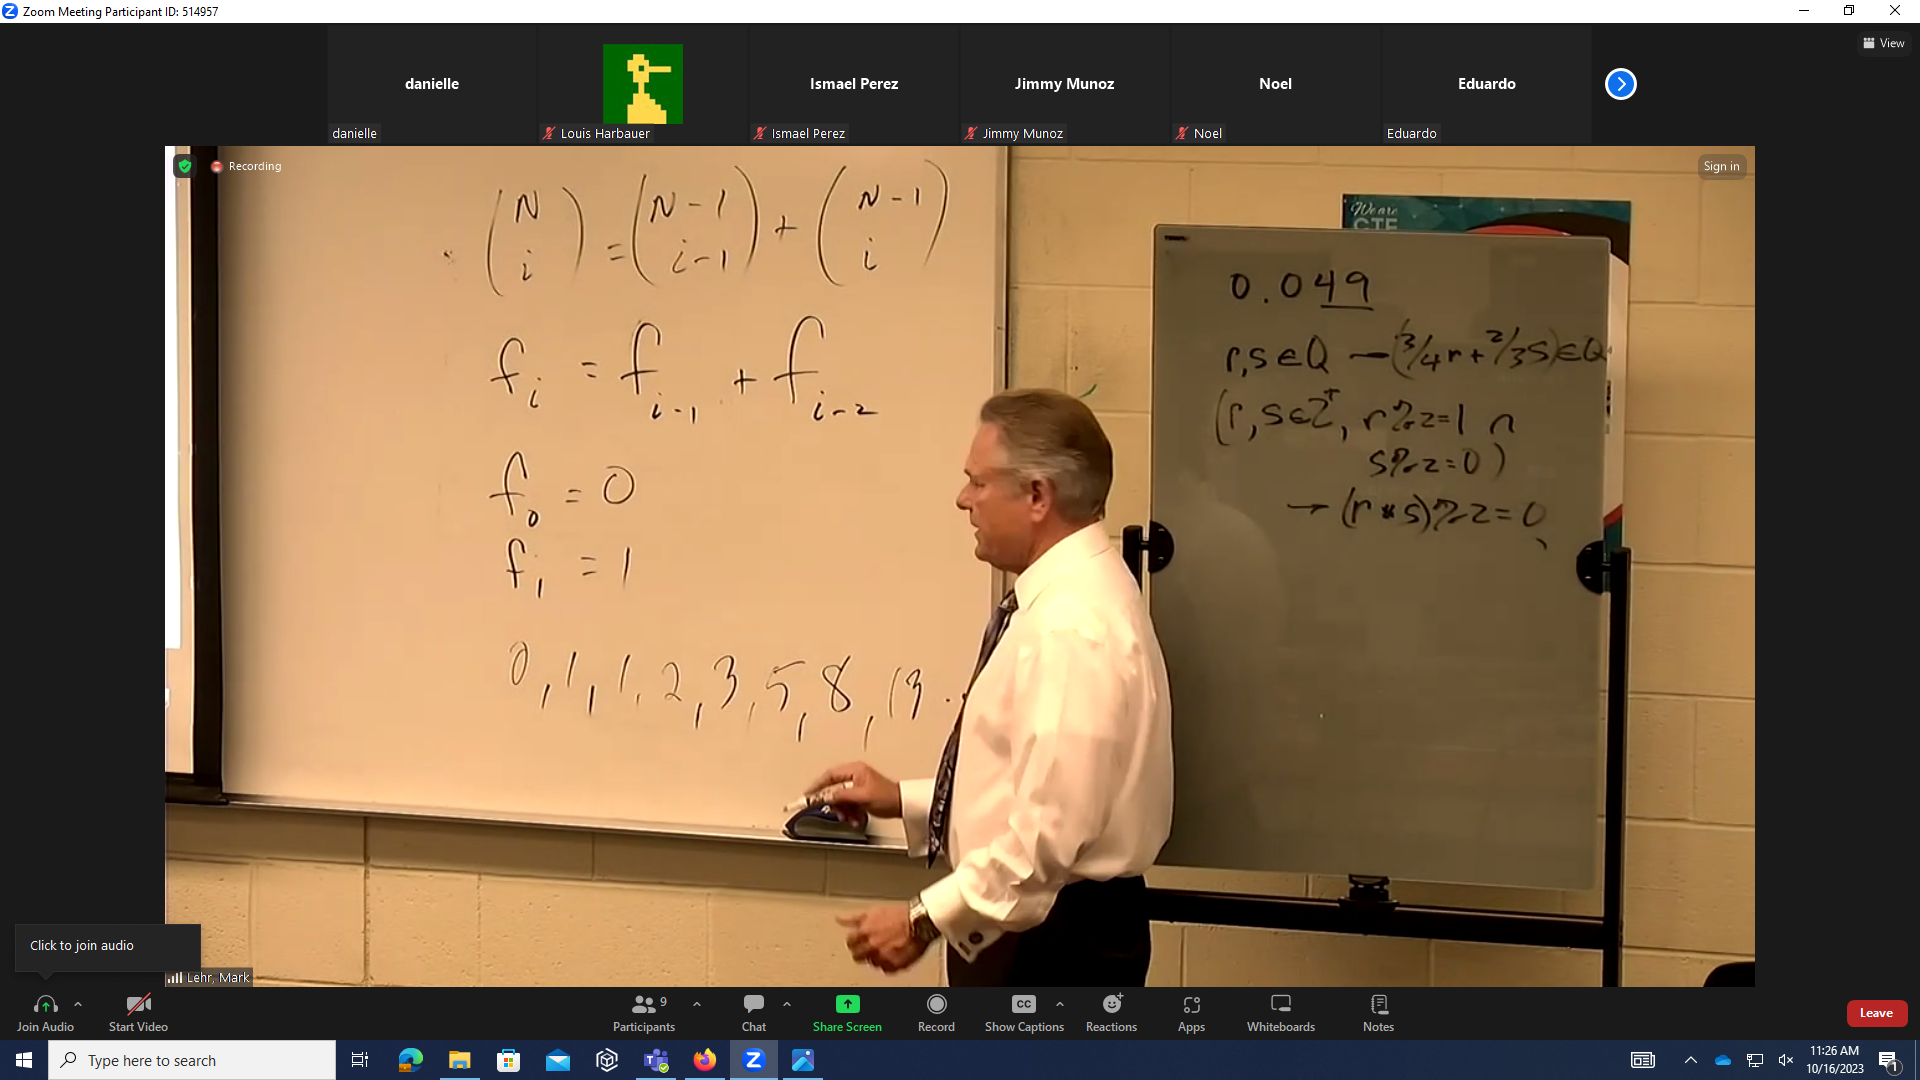 Zoom Meeting Participant ID: 514957
View
danielle
Ismael Perez
Jimmy Munoz
Noel
Eduardo
danielle
Louis Harbauer
Ismael Perez
Jimmy Munoz
Noel
Eduardo
Recording
Sign in
(N i) = (N-1 i-1) + (N-1 i)
f_i = f_{i-1} + f_{i-2}
f_0 = 0
f_1 = 1
0, 1, 1, 2, 3, 5, 8, 13 ..
We are
CTE
0.049
r,s∈Q → (3/4r + 2/3s)∈Q
(r, s∈Z⁺, r%2=1 ∩
s%2=0)
→ (r * s)%2=0
Click to join audio
Lehr, Mark
Join Audio
Start Video
Participants
9
Chat
Share Screen
Record
CC
Show Captions
Reactions
Apps
Whiteboards
Notes
Leave
Type here to search
11:26 AM
10/16/2023
1